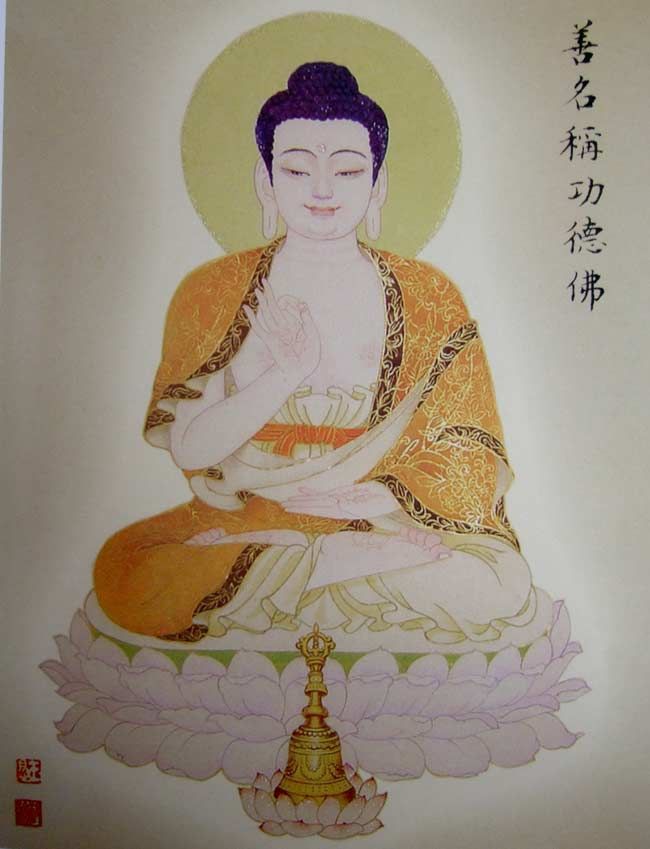 善名稱功德佛